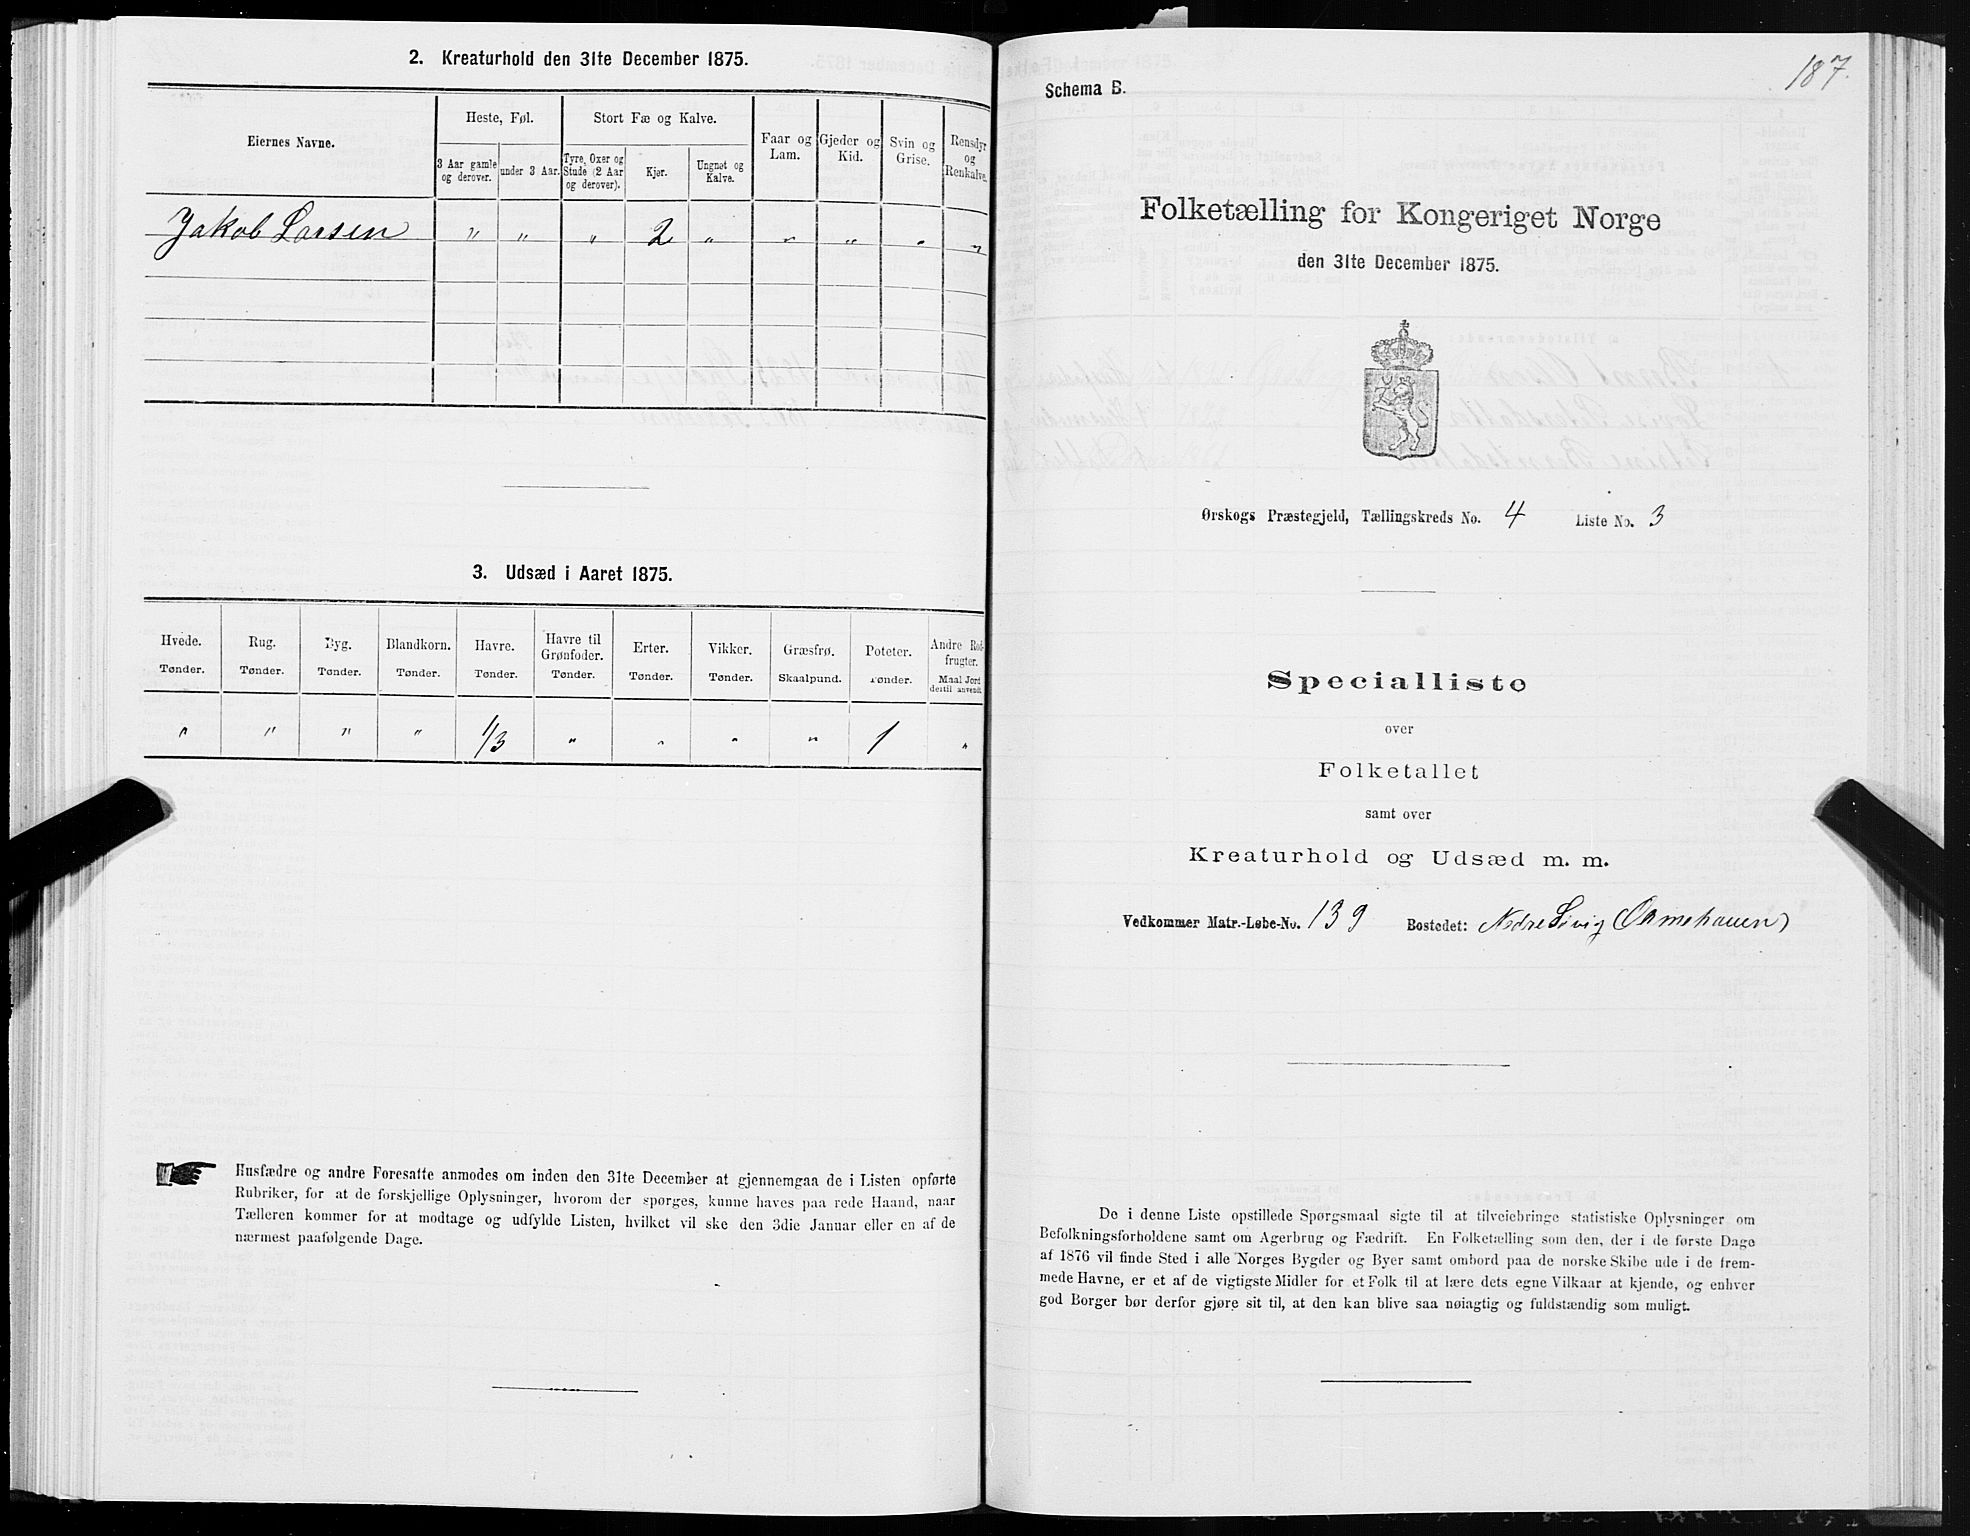 2. Kreaturhold den 31te December 1875.
Eiernes Navne.
Heste, Føl.
Stort Fæ og Kalve.
Faar og Lam.
Gjeder og Kid.
Svin og Grise.
Rensdyr og Renkalve.
3 Aar gamle og derover.
under 3 Aar.
Tyre, Oxer og Stude (2 Aar og derover).
Kjør.
Ungnøt og Kalve.
Jakob Larsen " " " 2 " " " " "
3. Udsæd i Aaret 1875.
Hvede. Rug. Byg. Blandkorn. Havre. Havre til Grønfoder. Erter. Vikker. Græsfrø. Poteter. Andre Rodfrugter.
Tønder. Tønder. Tønder. Tønder. Tønder. Tønder. Tønder. Tønder. Skaalpund. Tønder. Maal Jord dertil anvendt
" " " " 1/3 " " " " 1 "
Husfædre og andre Foresatte anmodes om inden den 31te December at gjennemgaa de i Listen opførte
Rubriker, for at de forskjellige Oplysninger, hvorom der spørges, kunne haves paa rede Haand, naar
Tælleren kommer for at modtage og udfylde Listen, hvilket vil ske den 3die Januar eller en af de
nærmest paafølgende Dage.
187.
Schema B.
Folketælling for Kongeriget Norge
den 31te December 1875.
Ørskogs Præstegjeld, Tællingskreds No. 4 Liste No. 3
Specialliste
over
Folketallet
samt over
Kreaturhold og Udsæd m. m.
Vedkommer Matr.-Løbe-No. 139 Bostedet: Nedre
De i denne Liste opstillede Spørgsmaal sigte til at tilveiebringe statistiske Oplysninger om
Befolkningsforholdene samt om Agerbrug og Fædrift. En Folketælling som den, der i de første Dage
af 1876 vil finde Sted i alle Norges Bygder og Byer samt ombord paa de norske Skibe ude i de frem-
mede Havne, er et af de vigtigste Midler for et Folk til at lære dets egne Vilkaar at kjende, og enhver
god Borger bør derfor gjøre sit til, at den kan blive saa nøiagtig og fuldstændig som muligt.